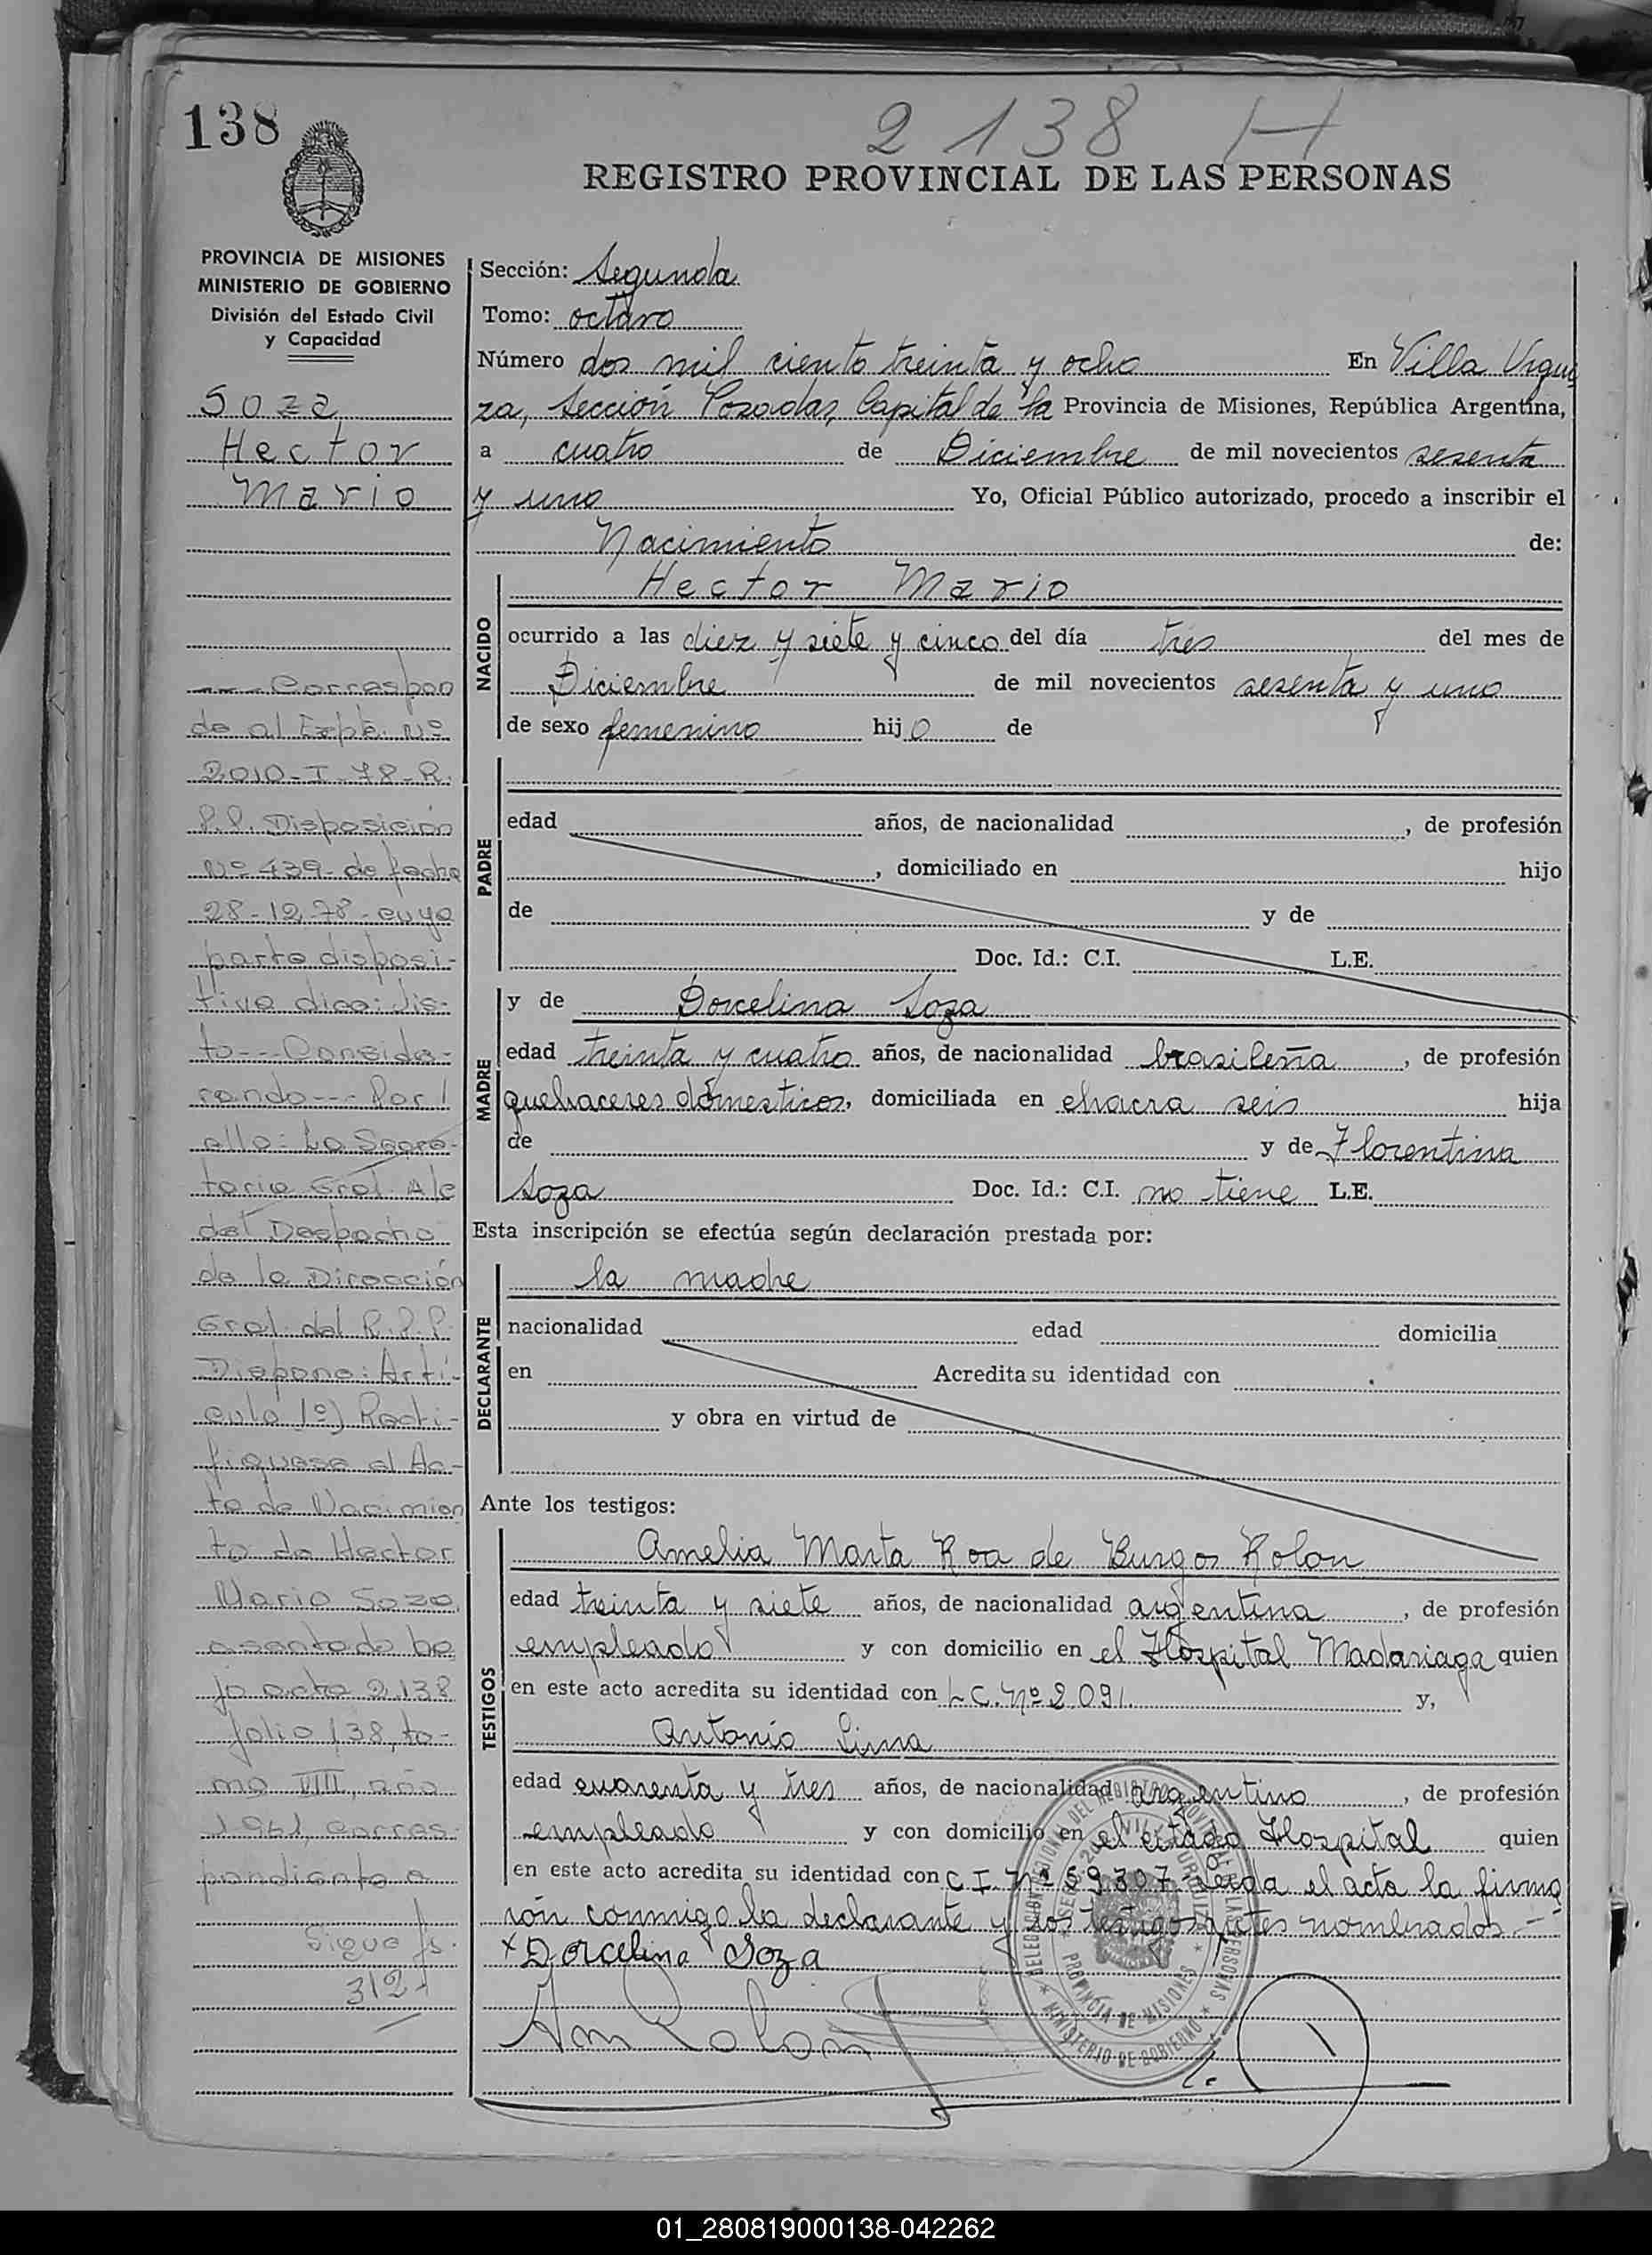 138
2138 H
REGISTRO PROVINCIAL DE LAS PERSONAS
PROVINCIA DE MISIONES
MINISTERIO DE GOBIERNO
División del Estado Civil
y Capacidad
Soza
Hector
Mario
--- Correspon
de al Expte. Nº
2010-I-78-R.
P.P. Disposición
Nº 439- de fecha
28-12-78- cuya
parte disposi-
tiva dice: Vis-
to--- Conside-
rando--- Por
ello: La Secre-
taria Gral. A/c
del Despacho
de la Dirección
Gral. del R.P.P.
Dispone: Artí-
culo 1º) Recti-
fíquese el Ac-
ta de Nacimien
to de Hector
Mario Soza,
asentado ba
jo acta 2138
folio 138, to-
mo VIII, año
1961, corres-
pondiente a
Sigue fs.
312
Sección: Segunda
Tomo: octavo
Número dos mil ciento treinta y ocho En Villa Urqui
za, Sección Posadas, Capital de la Provincia de Misiones, República Argentina,
a cuatro de Diciembre de mil novecientos sesenta
y uno Yo, Oficial Público autorizado, procedo a inscribir el
Nacimiento de:
NACIDO
Hector Mario
ocurrido a las diez y siete y cinco del día tres del mes de
Diciembre de mil novecientos sesenta y uno
de sexo femenino hijo de
PADRE
edad años, de nacionalidad , de profesión
, domiciliado en hijo
de y de
Doc. Id.: C.I. L.E.
MADRE
y de Dorcelina Soza
edad treinta y cuatro años, de nacionalidad brasileña , de profesión
quehaceres domesticos, domiciliada en chacra seis hija
de y de Florentina
Soza Doc. Id.: C.I. no tiene L.E.
Esta inscripción se efectúa según declaración prestada por:
DECLARANTE
la madre
nacionalidad edad domicilia
en Acredita su identidad con
y obra en virtud de
Ante los testigos:
TESTIGOS
Amelia Marta Roa de Burgos Rolon
edad treinta y siete años, de nacionalidad argentina , de profesión
empleado y con domicilio en el Hospital Madariaga quien
en este acto acredita su identidad con L.C. Nº 2.091. y,
Antonio Lima
edad cuarenta y tres años, de nacionalidad argentino , de profesión
empleado y con domicilio en el citado Hospital quien
en este acto acredita su identidad con C.I. Nº 59.307- Leida el acta la firma
rón conmigo la declarante y los testigos antes nombrados.-
x Dorcelina Soza
DELEGACION DEL REGISTRO PROVINCIAL DE LAS PERSONAS
VILLA URQUIZA
PROVINCIA DE MISIONES
MINISTERIO DE GOBIERNO
01_280819000138-042262